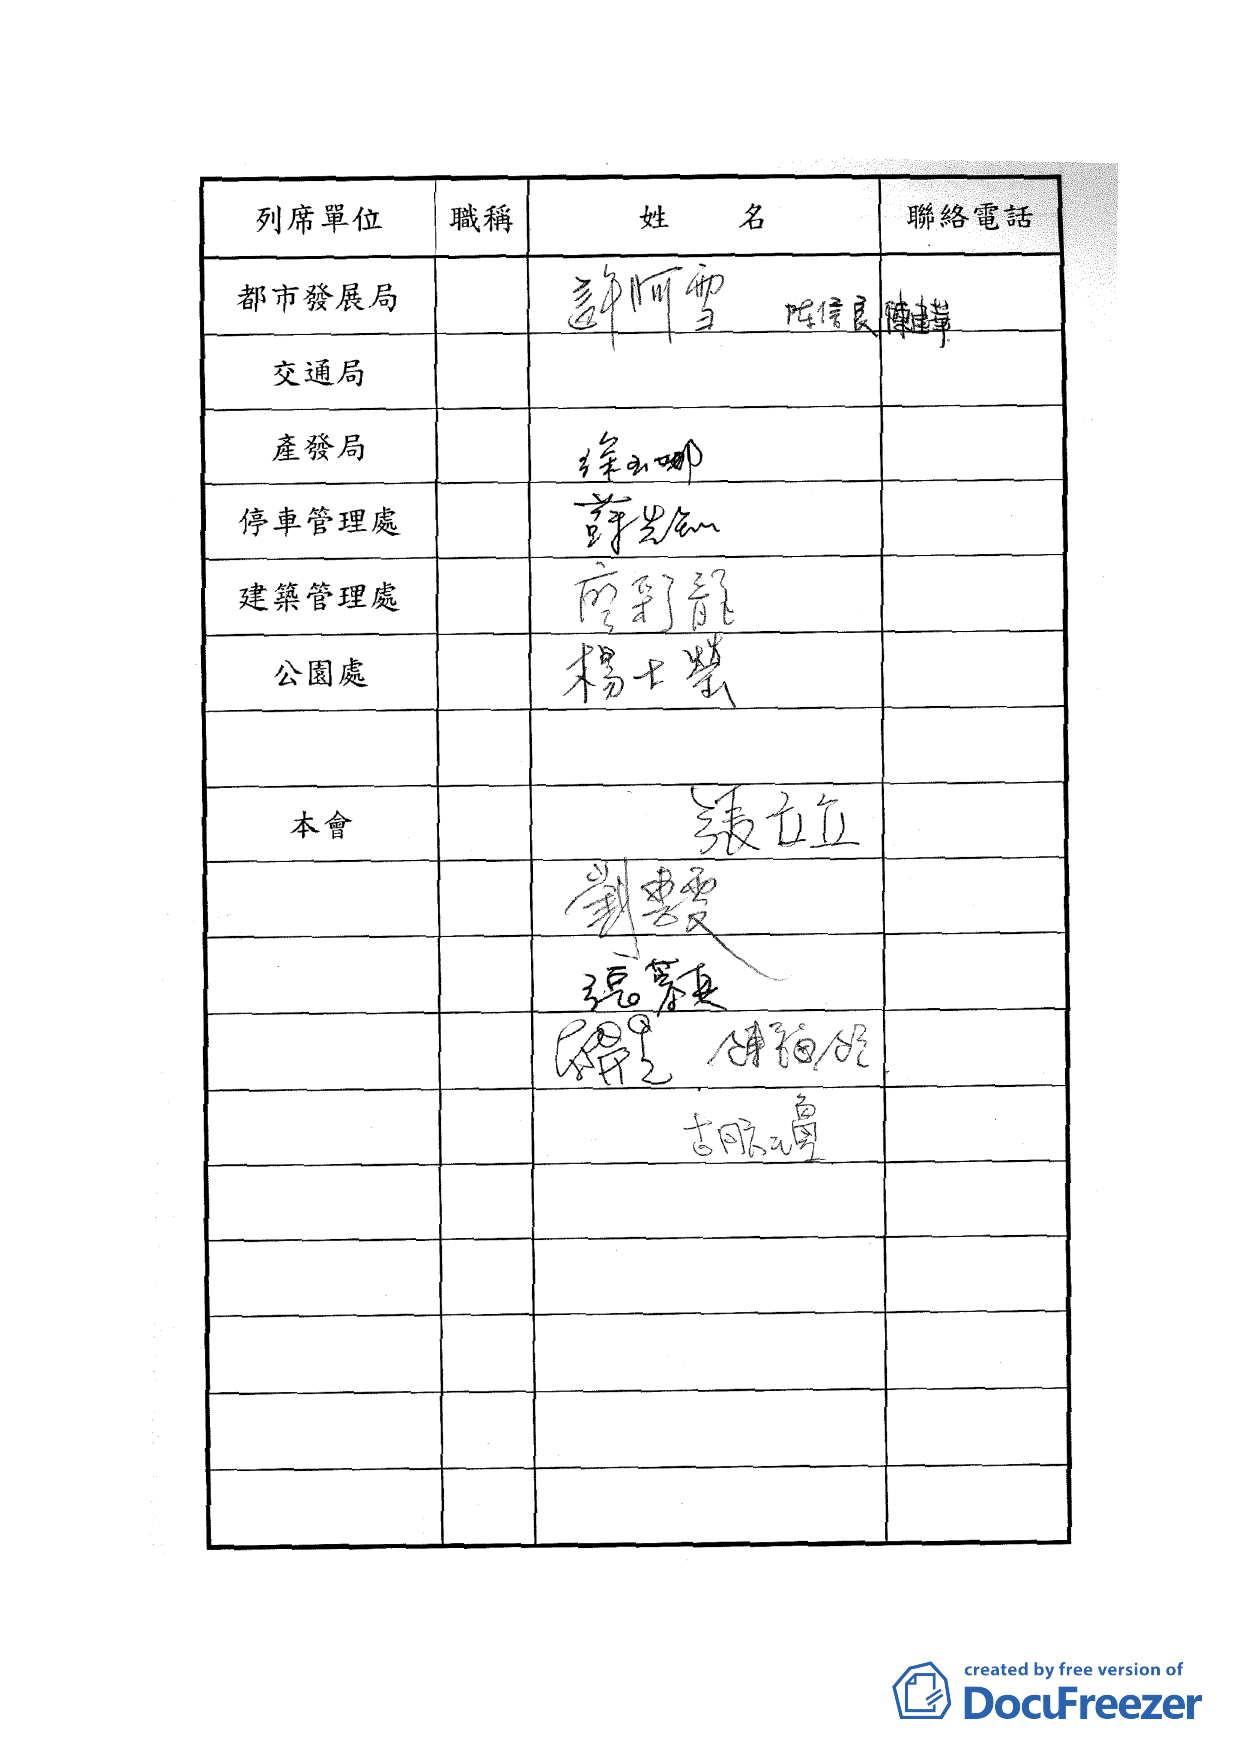 列席單位 職稱 姓名 聯絡電話
都市發展局 許阿雪 陳信良 陳建華
交通局
產發局 徐玉娜
停車管理處 蘇先知
建築管理處 廖彩龍
公園處 楊士瑩
本會 張立立
劉惠雯
張蓉真
created by free version of
DocuFreezer